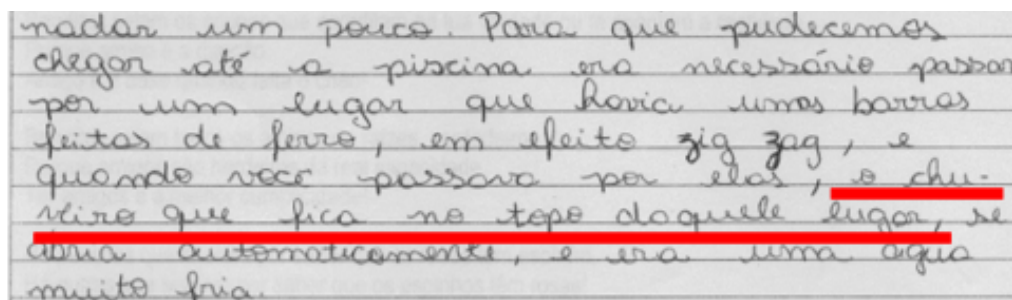 nadar um pouco. Para que pudecemos
chegar até a piscina era necessário passar
por um lugar que havia umas barras
feitas de ferro, em efeito zig zag, e
quando você passava por elas, o chu-
veiro que fica no topo daquele lugar, se
abria automaticamente, e era uma água
muito fria.